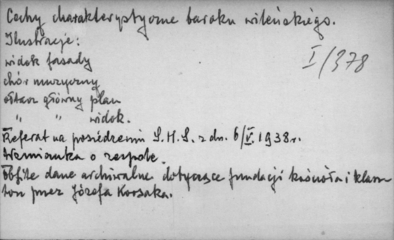 Cechy charakterystyczne baroku wileńskiego.
Ilustracje:
widok fasady
I/378
chór muzyczny
ołtarz główny plan
" " widok.
Referat na posiedzeniu S.H.S. z dn. 6/V.1938 r.
Wzmianka o zespole.
Obfite dane archiwalne dotyczące fundacji kościoła i klasz
toru przez Józefa Korsaka.